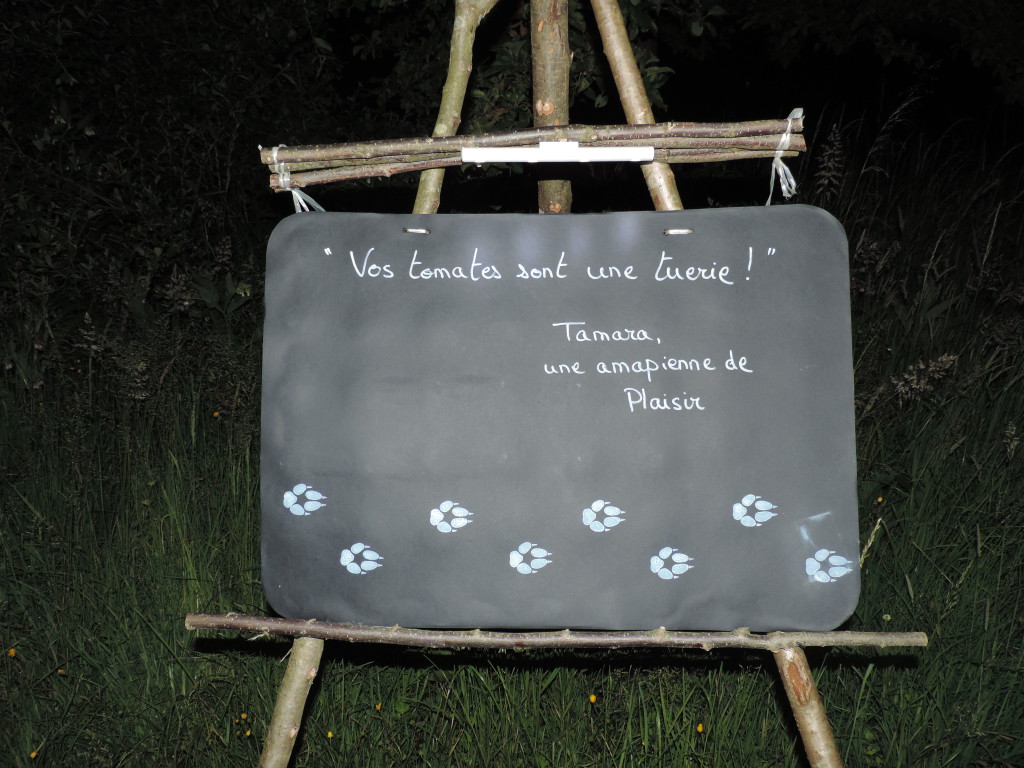 " Vos tomates sont une tuerie ! "
Tamara,
une amapienne de
Plaisir